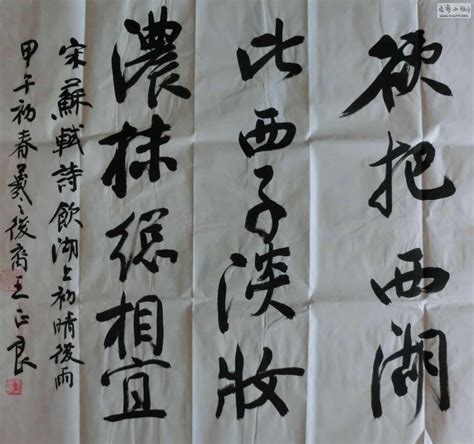 欲把西湖
比西子淡妝
濃抹總相宜
宋蘇軾詩飲湖上初晴後雨
甲午初春羲之後裔王正良